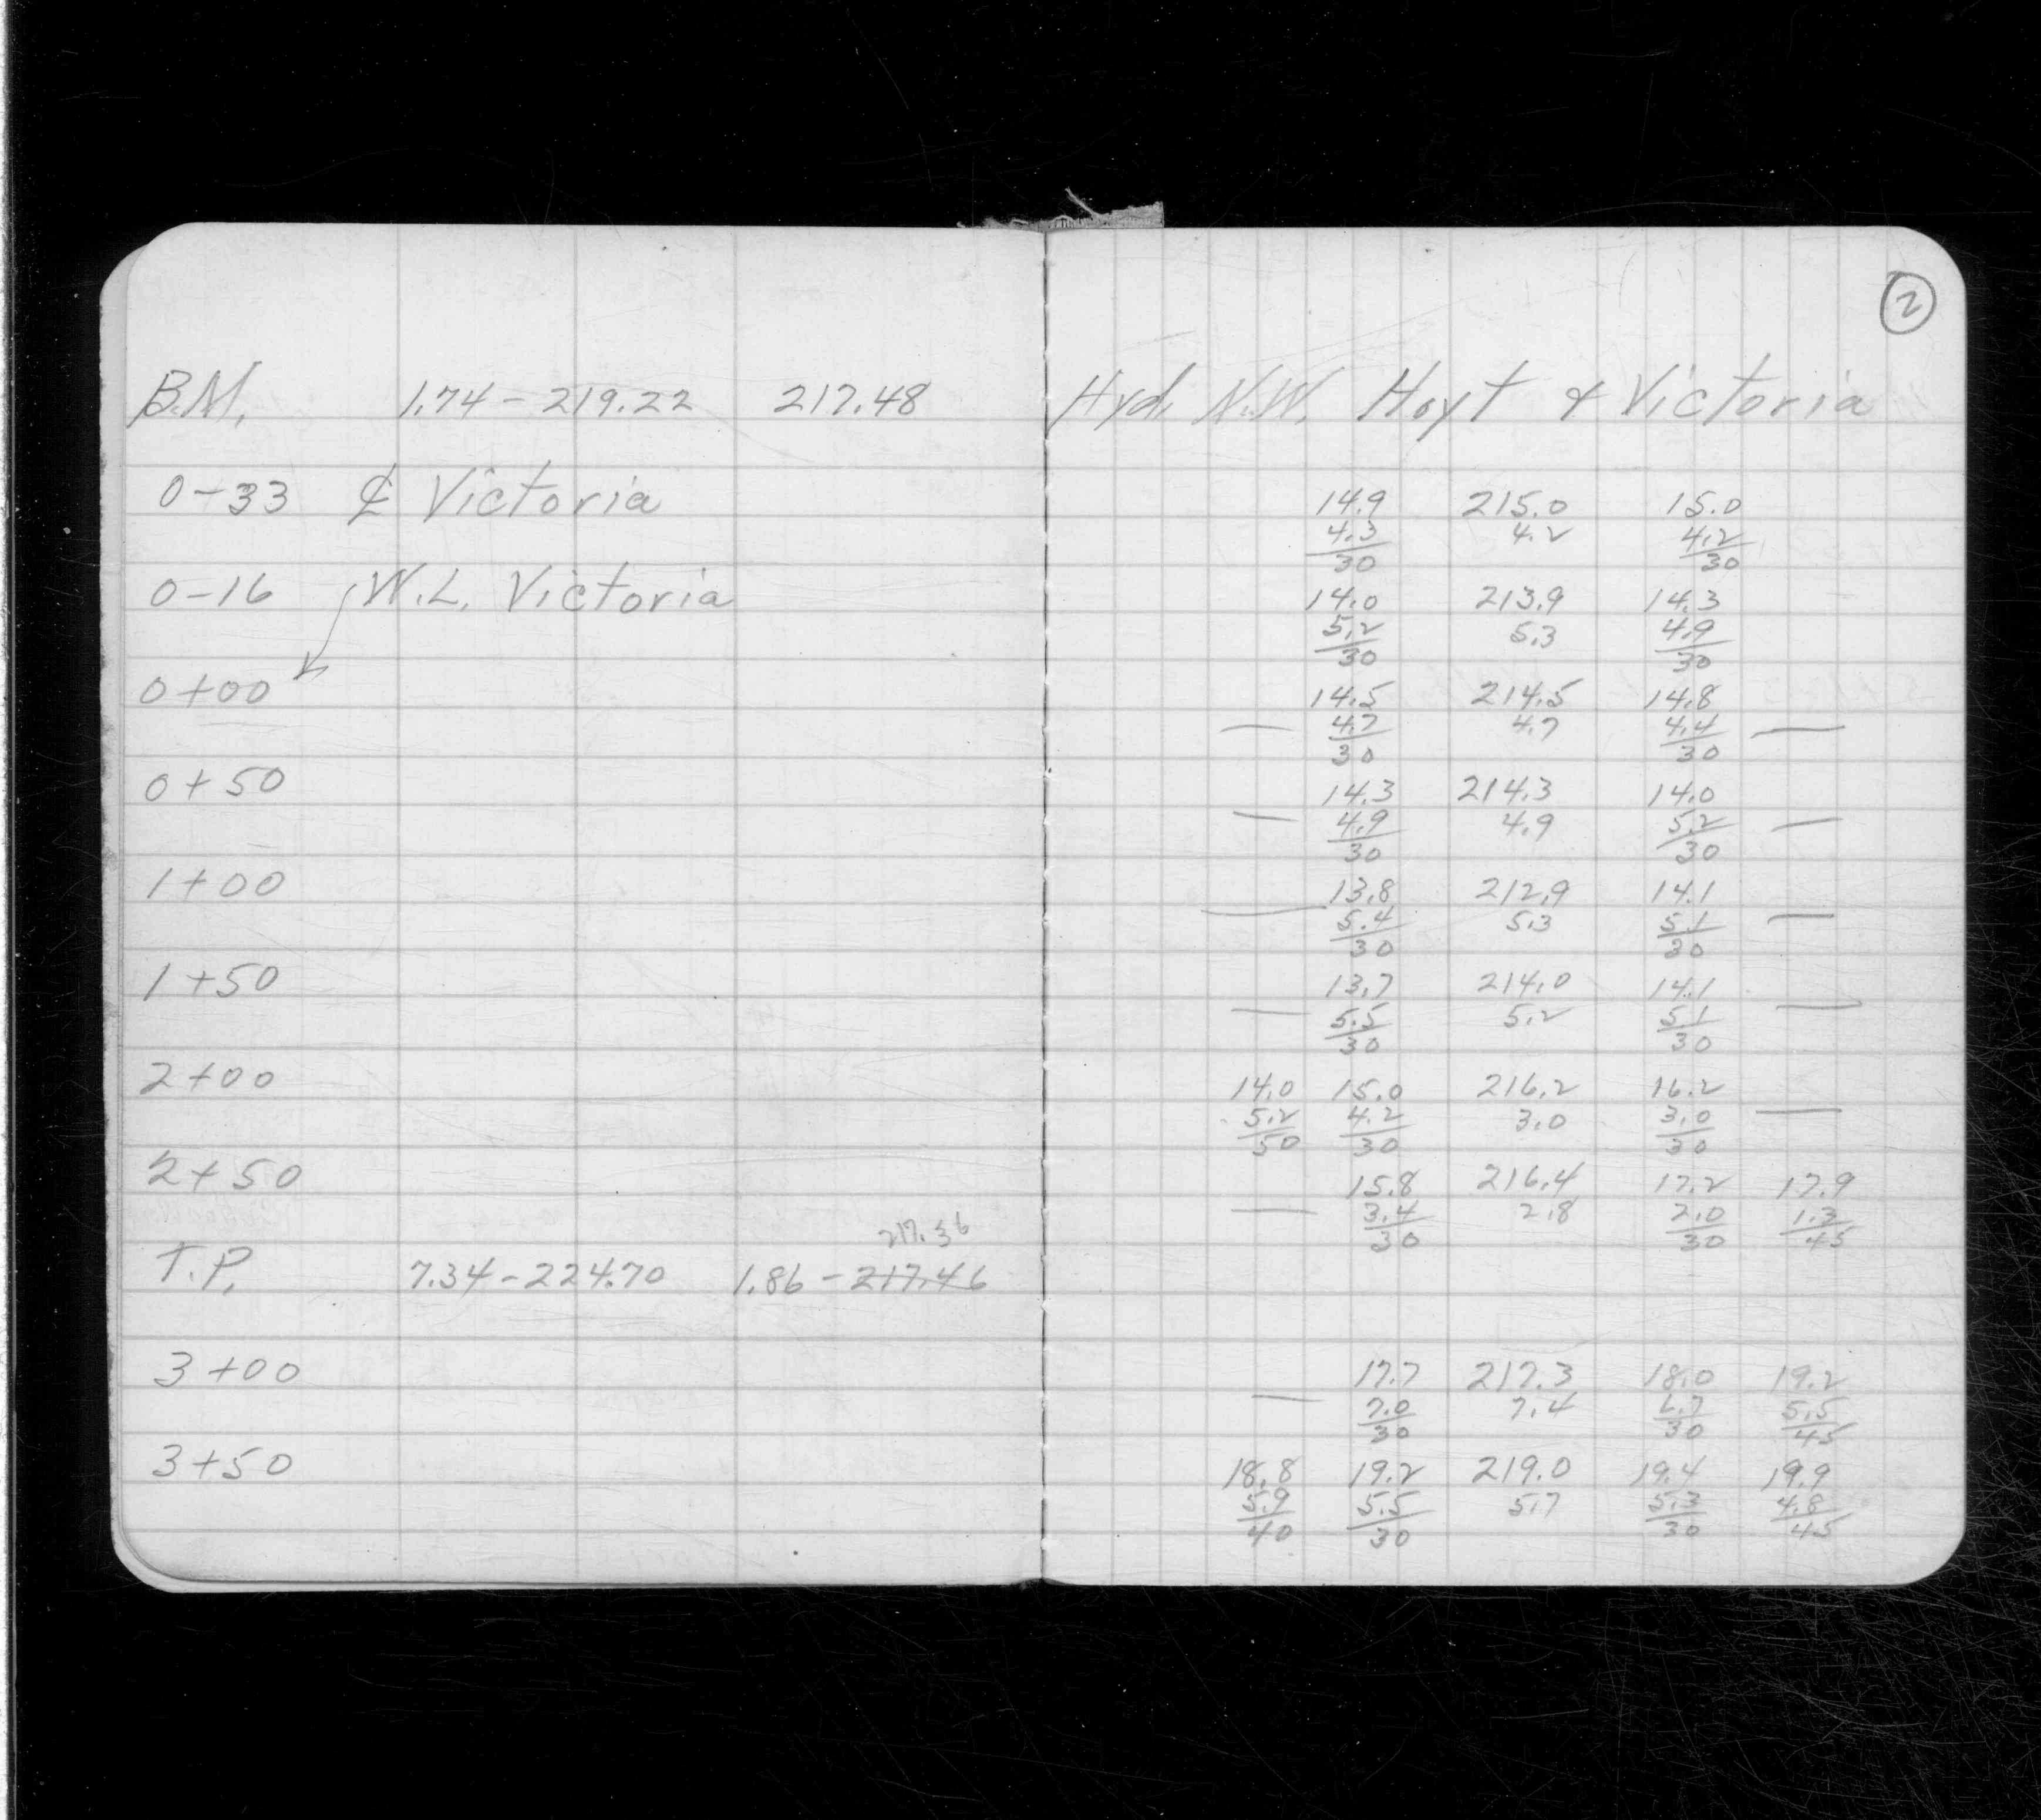 2
B.M. 1.74 - 219.22 217.48 Hyd. N.W. Hoyt & Victoria
0-33 ℄ Victoria 14.9 215.0 15.0
4.3 4.2 4.2
30 30
0-16 W.L. Victoria 14.0 213.9 14.3
5.2 5.3 4.9
30 30
0+00 14.5 214.5 14.8
— 4.7 4.7 4.4 —
30 30
0+50 14.3 214.3 14.0
— 4.9 4.9 5.2 —
30 30
1+00 13.8 212.9 14.1
— 5.4 5.3 5.1 —
30 30
1+50 13.7 214.0 14.1
— 5.5 5.2 5.1 —
30 30
2+00 14.0 15.0 216.2 16.2
5.2 4.2 3.0 3.0 —
50 30 30
2+50 15.8 216.4 17.2 17.9
— 3.4 2.8 2.0 1.3
30 30 45
217.36
T.P. 7.34 - 224.70 1.86 - 217.46
3+00 17.7 217.3 18.0 19.2
— 7.0 7.4 6.7 5.5
30 30 45
3+50 18.8 19.2 219.0 19.4 19.9
5.9 5.5 5.7 5.3 4.8
40 30 30 45